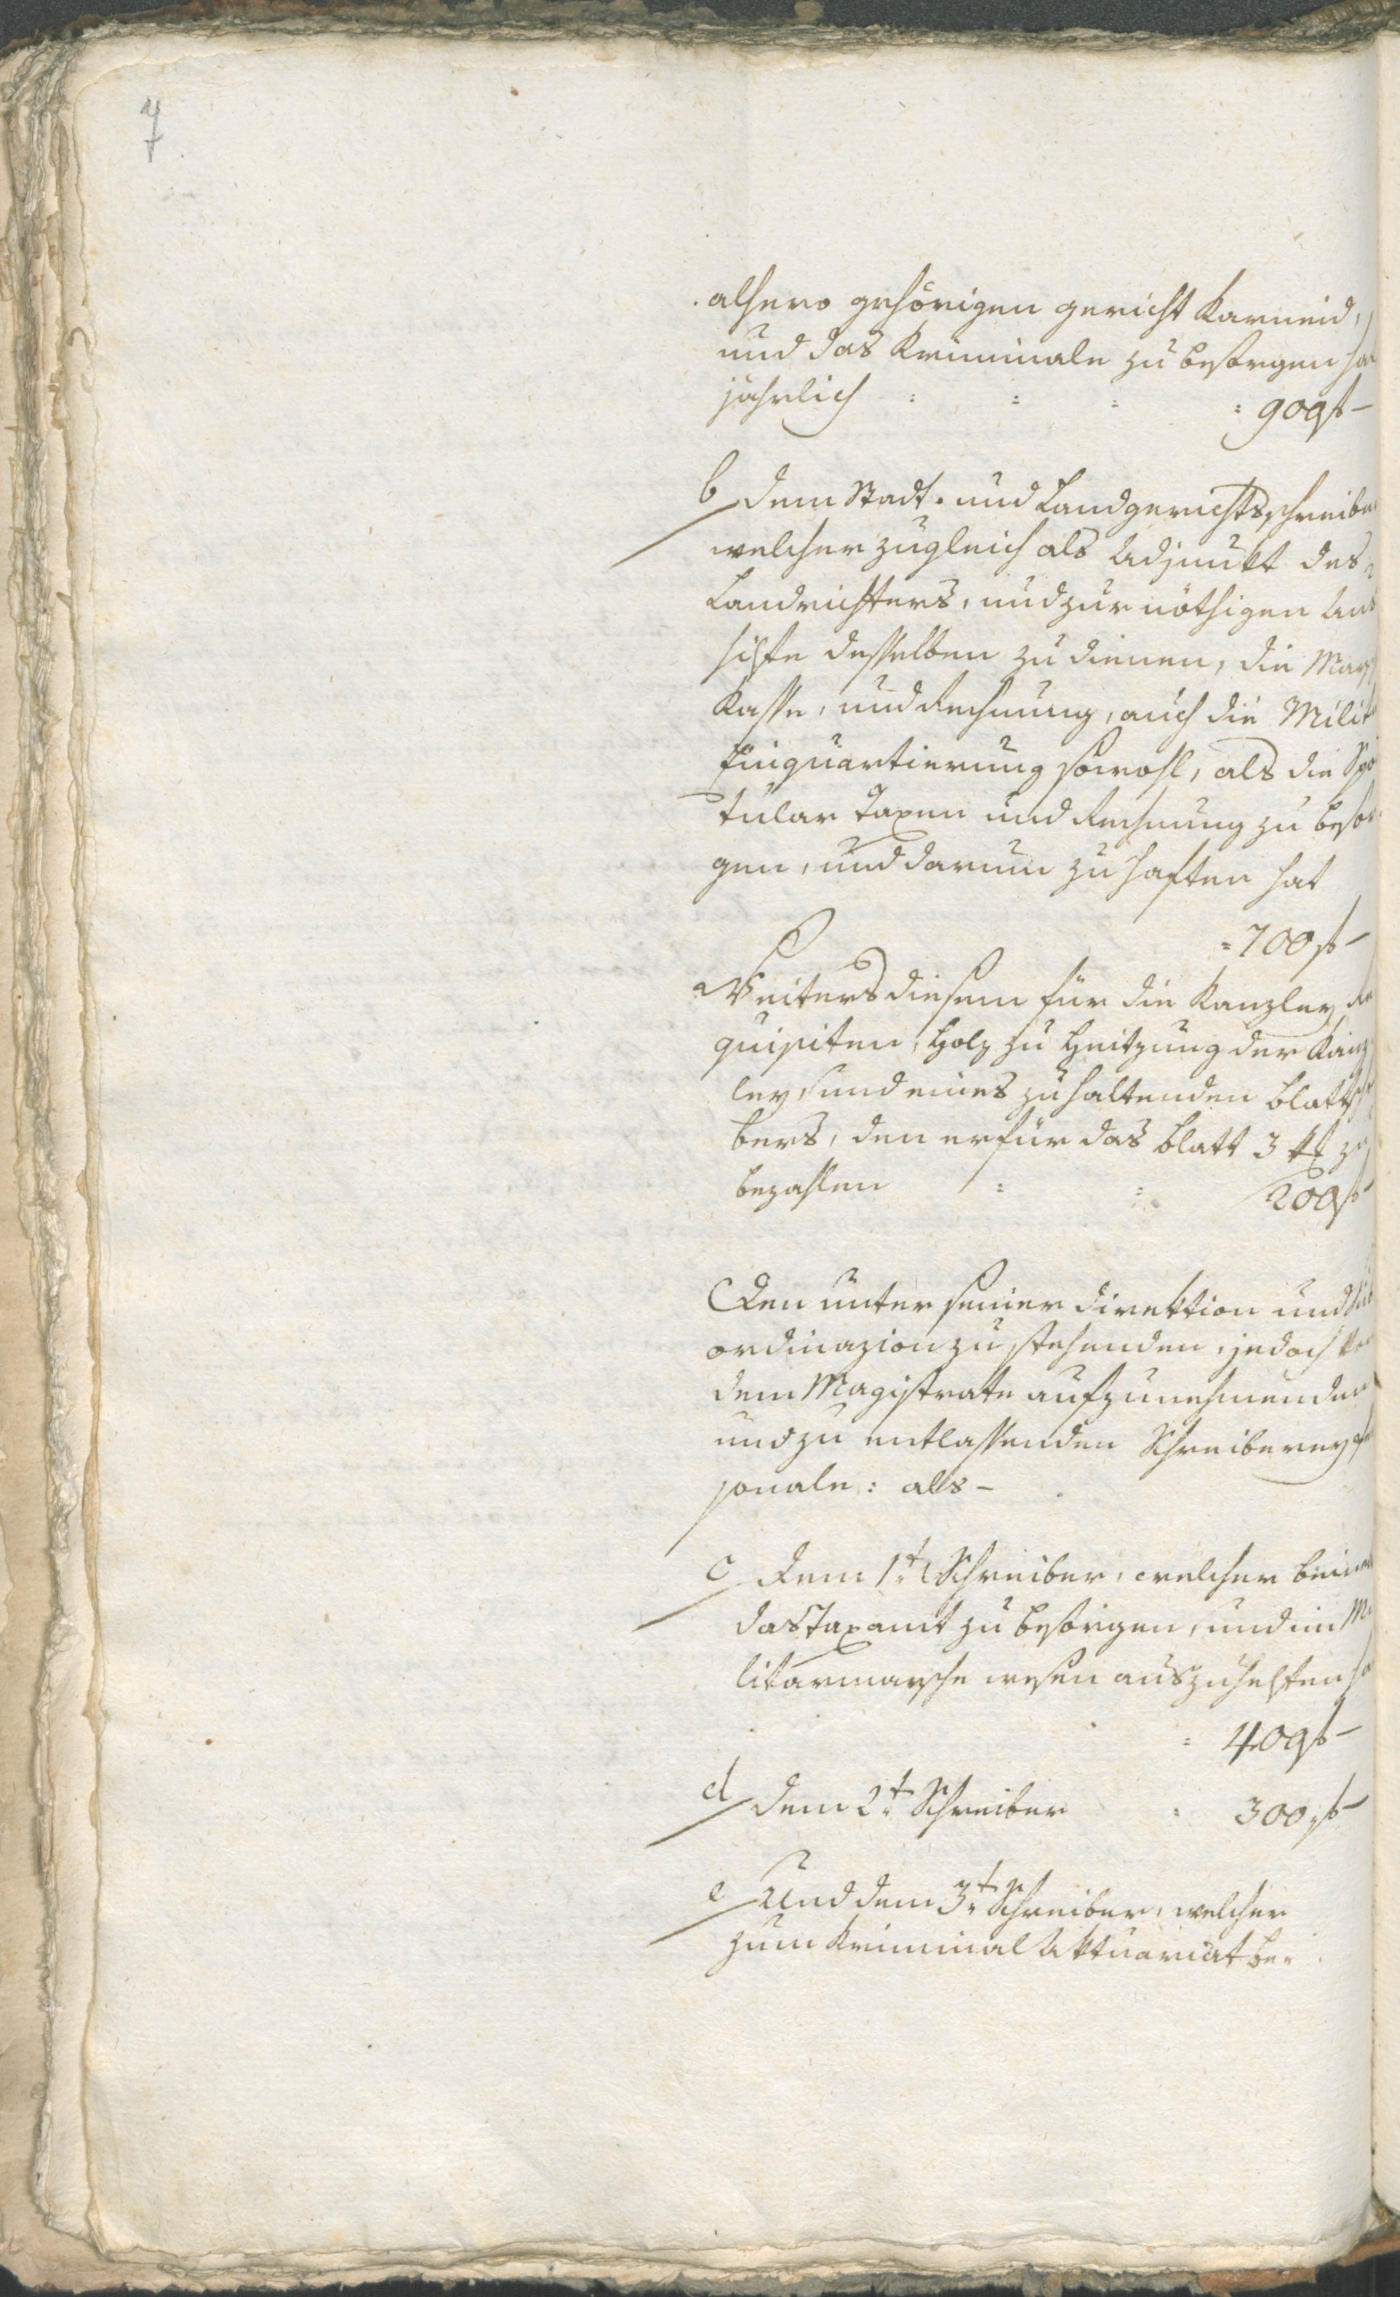 7
alhero gehörigen gericht Karneid,
und das Kriminale zu besorgen ha
jährlich = = = = 900 f –
b dem Stadt- und Landgerichtsschreibe
welcher zugleich als Adjunkt des
Landrichters, und zur nöthigen Aus
hilfe desselben zu dienen, die Marsch
Kasse, und Rechnung, auch die Milit
Einquartierung sowohl, als die Spor
tular Taxen und Rechnung zu besor
gen, und darum zu haften hat
= 700 f –
Weiters diesem für die Kanzley Re
quisiten, Holz zu Heitzung der Kanz
ley, und eines zu haltenden Blattsch
bers, den er für das Blatt 3 kr zu
bezahlen = = 200 f –
Den unter seiner Direktion und Sub
ordinazion zu stehenden, jedoch von
dem Magistrate aufzunehmenden
und zu entlassenden Schreiberey Per
sonale: als –
c dem 1t. Schreiber, welcher beine
das Taxamt zu besorgen, und im Mi
litarmarsche wesen auszuhelfen ha
= 400 f –
d dem 2t. Schreiber = 300 f –
e Und dem 3t. Schreiber, welcher
zum Kriminal Aktuariat be-